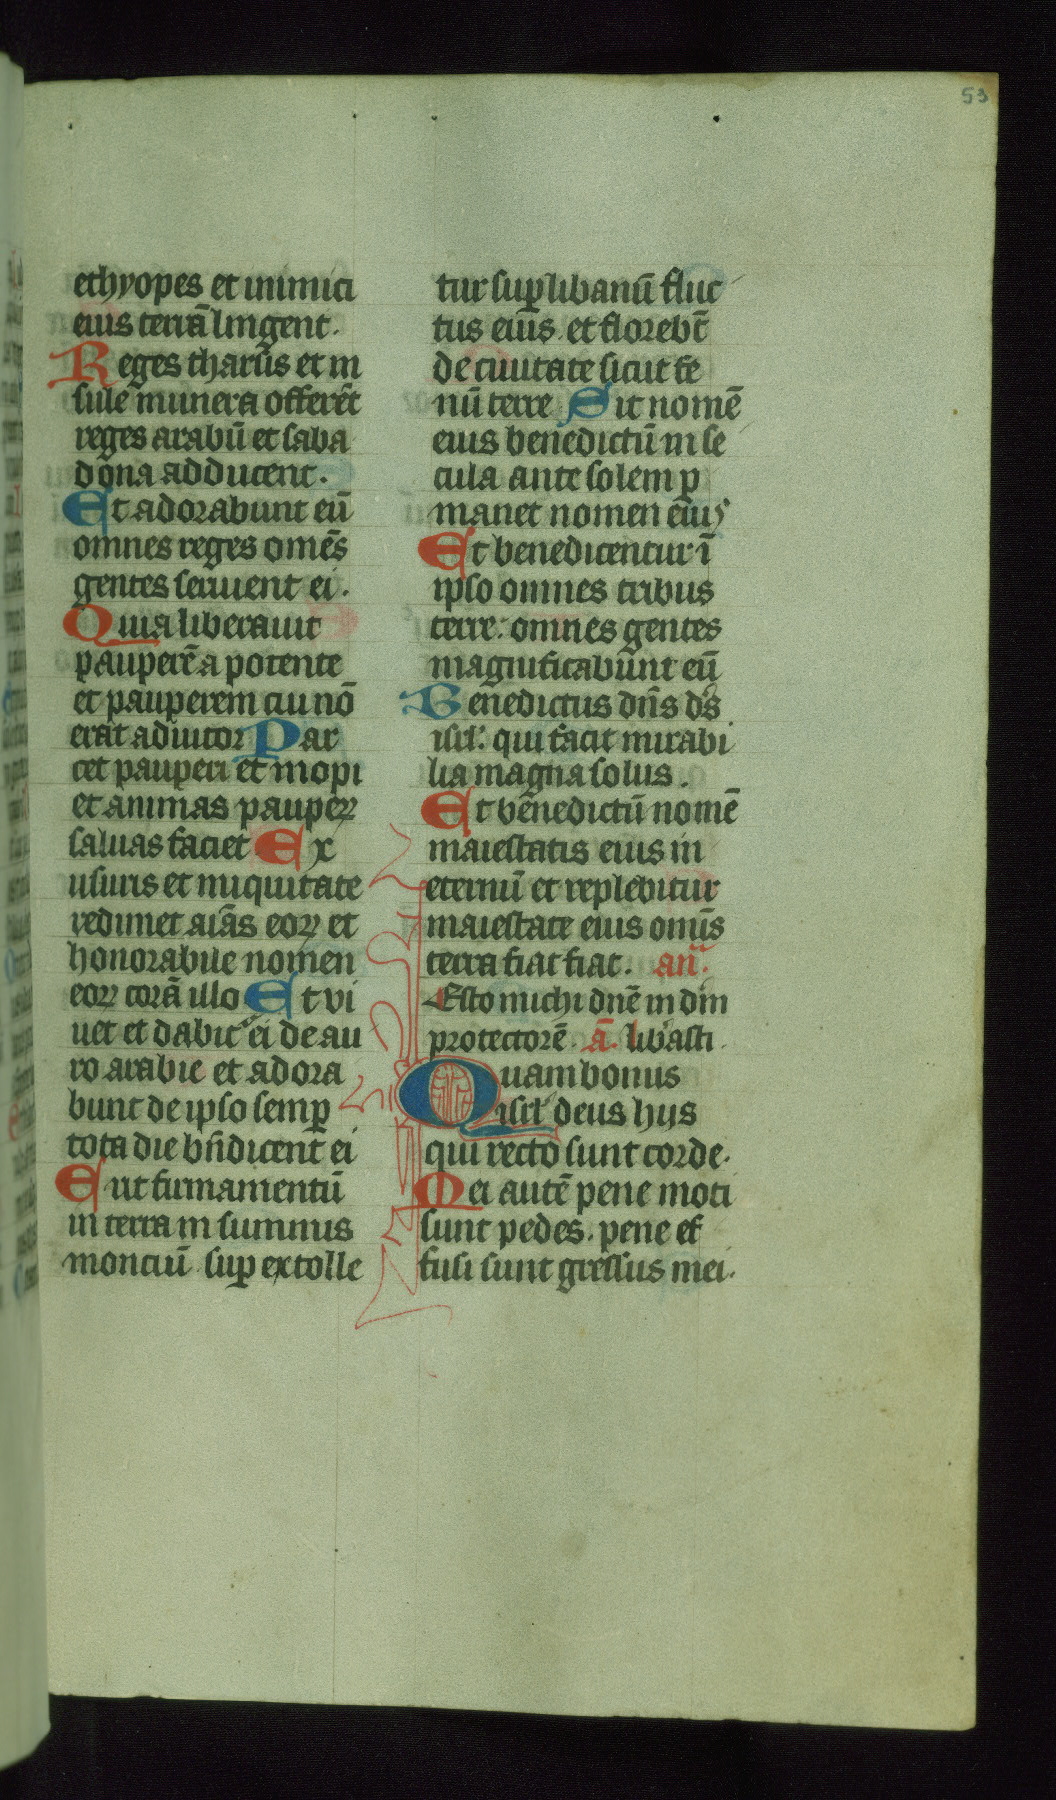 53
ethyopes et inimici
eius terrā lingent.
Reges tharsis et in
sule munera offerēt
reges arabū et saba
dona adducent.
Et adorabunt eū
omnes reges omēs
gentes seruient ei.
Quia liberauit
pauperē a potente
et pauperem cui nō
erat adiutor Par
cet pauperi et inopi
et animas pauperꝝ
saluas faciet Ex
usuris et iniquitate
redimet aīas eoꝝ et
honorabile nomen
eoꝝ corā illo Et vi
uet et dabit ei de au
ro arabie et adora
bunt de ipso semꝑ
tota die bn̄dicent ei
Erit firmamentū
in terra in summis
monciū suꝑ extolle
tur suꝑ libanū fluc
tus eius et florebt̄
de ciuitate sicut fe
nū terre Sit nomē
eius benedictū in se
cula ante solem ꝑ
manet nomen eius
Et benedicentur ī
ipso omnes tribus
terre: omnes gentes
magnificabunt eū
Benedictus dn̄s ds̄
isrl̄: qui facit mirabi
lia magna solus.
Et benedictū nomē
maiestatis eius in
eternū et replebitur
maiestate eius omīs
terra fiat fiat. an̄.
Esto michi dn̄e in dm̄
protectorē. ā. libasti.
Quam bonus
isrl̄ deus hijs
qui recto sunt corde.
Mei autē pene moti
sunt pedes. pene ef
fusi sunt gressus mei.